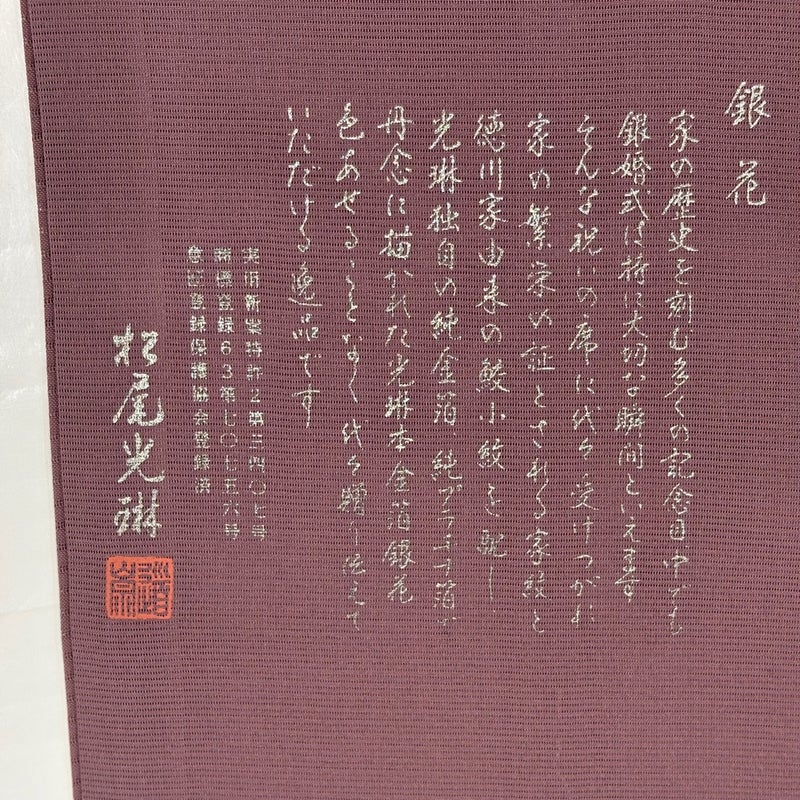 銀花
家の歴史を刻む多くの記念日中でも
銀婚式は特に大切な瞬間といえます
そんな祝いの席に代々受けつがれ
家の繁栄の証とされる家紋と
徳川家由来の鮫小紋を配し、
光琳独自の純金箔、純プラチナ箔が
丹念に描かれた光琳本金箔銀花
色あせることなく代々贈り伝えて
いただける逸品です
実用新案特許2第三四〇七号
商標登録63第七〇七五六号
意匠登録保護協会登録済
松尾光琳